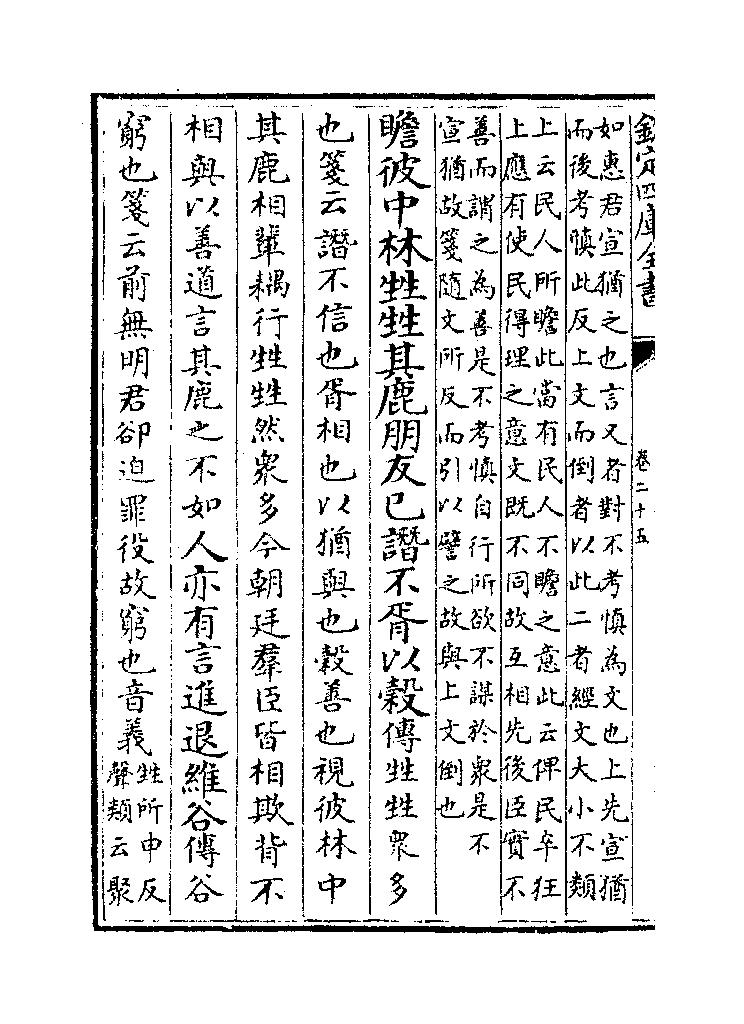 欽定四庫全書
卷二十五
如惠君宣猶之也言又者對不考慎為文也上先宣猶
而後考慎此反上文而倒者以此二者經文大小不類
上云民人所瞻此當有民人不瞻之意此云俾民卒狂
上應有使民得理之意文既不同故互相先後臣實不
善而謂之為善是不考慎自行所欲不謀於衆是不
宣猶故箋隨文所反而引以譬之故與上文倒也
瞻彼中林甡甡其鹿朋友已譖不胥以穀傳甡甡衆多
也箋云譖不信也胥相也以猶與也穀善也視彼林中
其鹿相輩耦行甡甡然衆多今朝廷羣臣皆相欺背不
相與以善道言其鹿之不如人亦有言進退維谷傳谷
窮也箋云前無明君卻迫罪役故窮也音義
甡所中反
聲類云聚